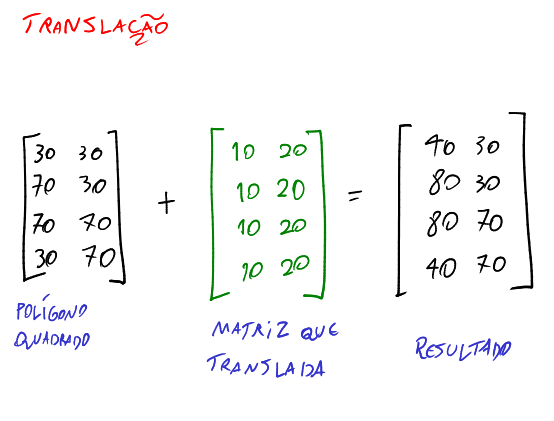 TRANSLAÇÃO
30 30 10 20 40 30
70 30 10 20 80 30
70 70 + 10 20 = 80 70
30 70 10 20 40 70
POLÍGONO
QUADRADO
MATRIZ QUE
TRANSLADA
RESULTADO